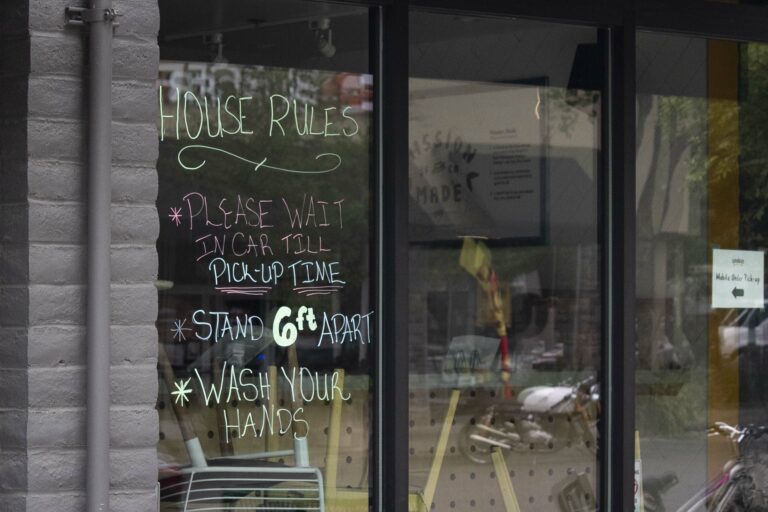 HOUSE RULES
*PLEASE WAIT
IN CAR TILL
PICK-UP TIME
*STAND 6ft APART
*WASH YOUR
HANDS
MADE
Mobile Order Pick-up